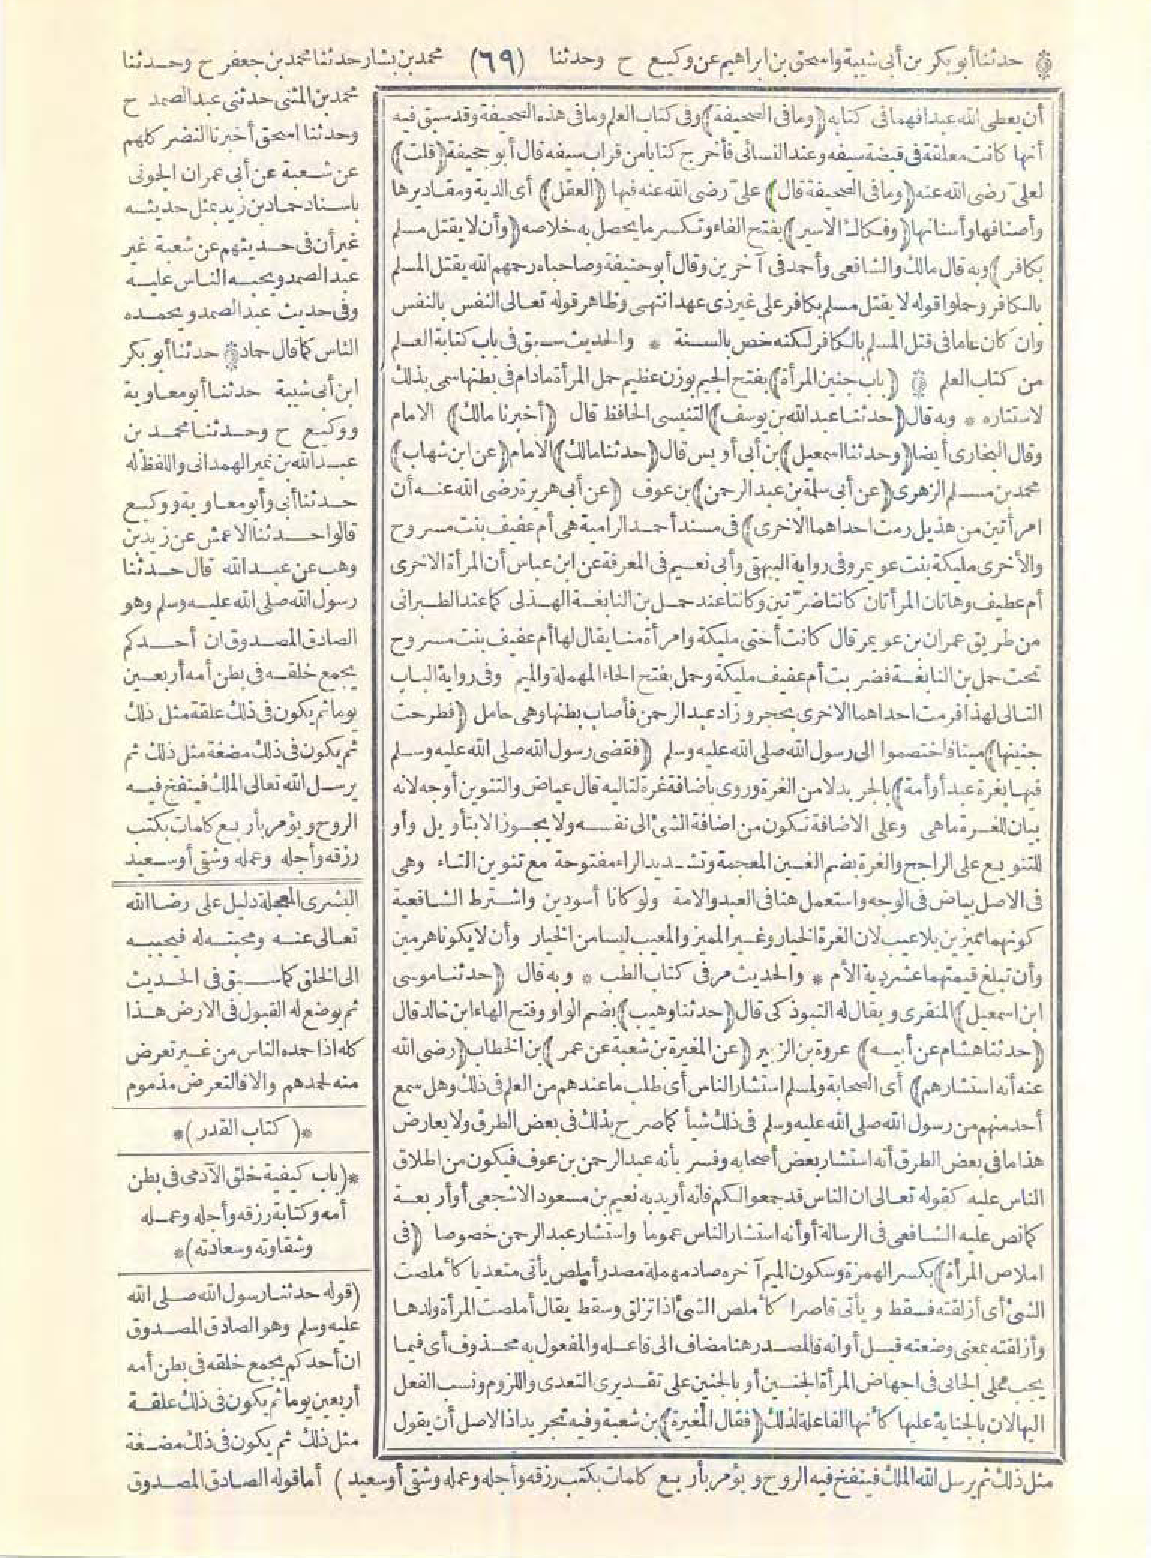 * حدثنا أبو بكر بن أبي شيبة واسحق بن ابراهيم عن وكيع ح وحدثنا (٦٩) محمد بن بشار حدثنا محمد بن جعفر ح وحدثنا
أن يعطى الله عبدا فهما فى كتابه (وما فى الصحيفة) وفى كتاب العلم وما فى هذه الصحيفة وقد سبق فيه
أنها كانت معلقة فى قبضة سيفه وعند النسائى فأخرج كتابا من قراب سيفه قال أبو جحيفة (قلت)
لعلى رضى الله عنه (وما فى الصحيفة قال) علىّ رضى الله عنه فيها (العقل) أى الدية ومقاديرها
وأصنافها وأسنانها (وفكاك الاسير) بفتح الفاء وتكسر ما يحصل به خلاصه (وأن لا يقتل مسلم
بكافر) وبه قال مالك والشافعى وأحمد فى آخرين وقال أبو حنيفة وصاحباه رحمهم الله يقتل المسلم
بالكافر وحملوا قوله لا يقتل مسلم بكافر على غير ذى عهد انتهى وظاهر قوله تعالى النفس بالنفس
وان كان عاما فى قتل المسلم بالكافر لكنه خص بالسنة * والحديث سبق فى باب كتابة العلم
من كتاب العلم * (باب جنين المرأة) بفتح الجيم بوزن عظيم حمل المرأة ما دام فى بطنها سمى بذلك
لاستتاره * وبه قال (حدثنا عبد الله بن يوسف) التنيسى الحافظ قال (أخبرنا مالك) الامام
وقال البخارى أيضا (وحدثنا اسمعيل) بن أبى أويس قال (حدثنا مالك) الامام (عن ابن شهاب)
محمد بن مسلم الزهرى (عن أبى سلمة بن عبد الرحمن) بن عوف (عن أبى هريرة رضى الله عنه أن
امرأتين من هذيل رمت احداهما الاخرى) فى مسند أحمد الرامية هى أم عفيف بنت مسروح
والأخرى مليكة بنت عويمر وفى رواية البيهقى وأبى نعيم فى المعرفة عن ابن عباس أن المرأة الاخرى
أم عطيف وهاتان المرأتان كانتا ضرّتين وكانتا عند حمل بن النابغة الهذلى كما عند الطبرانى
من طريق عمران بن عويمر قال كانت أختى مليكة وامرأة منا يقال لها أم عفيف بنت مسروح
تحت حمل بن النابغة فضربت أم عفيف مليكة وحمل بفتح الحاء المهملة والميم وفى رواية الباب
التالى لهذا فرمت احداهما الاخرى بحجر وزاد عبد الرحمن فأصاب بطنها وهى حامل (فطرحت
جنينها) ميتا فاختصموا الى رسول الله صلى الله عليه وسلم (فقضى رسول الله صلى الله عليه وسلم
فيها بغرة عبد أو أمة) بالجر بدلا من الغرة وروى باضافة غرة لتاليه قال عياض والتنوين أوجه لانه
بيان للغرة ما هى وعلى الاضافة تكون من اضافة الشئ الى نفسه ولا يجوز الا بتأويل وأو
للتنويع على الراجح والغرة بضم الغين المعجمة وتشديد الراء مفتوحة مع تنوين التاء وهى
فى الاصل بياض فى الوجه واستعمل هنا فى العبد والامة ولو كانا أسودين واشترط الشافعية
كونهما مميزين بلا عيب لان الغرة الخيار وغير المميز والمعيب ليسا من الخيار وأن لا يكونا هرمين
وأن تبلغ قيمتهما عشر دية الأم * والحديث مر فى كتاب الطب * وبه قال (حدثنا موسى
ابن اسمعيل) المنقرى ويقال له التبوذكى قال (حدثنا وهيب) بضم الواو وفتح الهاء ابن خالد قال
(حدثنا هشام عن أبيه) عروة بن الزبير (عن المغيرة بن شعبة عن عمر) بن الخطاب (رضى الله
عنه أنه استشارهم) أى الصحابة ولمسلم استشار الناس أى طلب ما عندهم من العلم فى ذلك وهل سمع
أحد منهم من رسول الله صلى الله عليه وسلم فى ذلك شيأ كما صرح بذلك فى بعض الطرق ولا يعارض
هذا ما فى بعض الطرق أنه استشار بعض أصحابه وفسر بأنه عبد الرحمن بن عوف فيكون من اطلاق
الناس عليه كقوله تعالى ان الناس قد جمعوا لكم فانه أريد به نعيم بن مسعود الاشجعى أو أربعة
كما نص عليه الشافعى فى الرسالة أو أنه استشار الناس عموما واستشار عبد الرحمن خصوصا (فى
املاص المرأة) بكسر الهمزة وسكون الميم آخره صاد مهملة مصدر أملص يأتى متعديا كأملصت
الشئ أى أزلقته فسقط ويأتى قاصرا كأملص الشئ اذا تزلق وسقط يقال أملصت المرأة ولدها
وأزلقته بمعنى وضعته قبل أوانه فالمصدر هنا مضاف الى فاعله والمفعول به محذوف أى فيما
يجب على الجانى فى اجهاض المرأة الجنين أو بالجنين على تقديرى التعدى واللزوم ونسب الفعل
اليها لان بالجناية عليها كأنها الفاعلة لذلك (فقال المغيرة) بن شعبة وفيه تجريد اذ الاصل أن يقول
محمد بن المثنى حدثنى عبد الصمد ح
وحدثنا اسحق أخبرنا النضر كلهم
عن شعبة عن أبى عمران الجونى
باسناد حماد بن زيد بمثل حديثه
غير أن فى حديثهم عن شعبة غير
عبد الصمد ويحبه الناس عليه
وفى حديث عبد الصمد ويحمده
الناس كما قال حماد * حدثنا أبو بكر
ابن أبى شيبة حدثنا أبو معاوية
ووكيع ح وحدثنا محمد بن
عبد الله بن نمير الهمدانى واللفظ له
حدثنا أبى وأبو معاوية ووكيع
قالوا حدثنا الاعمش عن زيد بن
وهب عن عبد الله قال حدثنا
رسول الله صلى الله عليه وسلم وهو
الصادق المصدوق ان أحدكم
يجمع خلقه فى بطن أمه أربعين
يوما ثم يكون فى ذلك علقة مثل ذلك
ثم يكون فى ذلك مضغة مثل ذلك ثم
يرسل الله تعالى الملك فينفخ فيه
الروح ويؤمر بأربع كلمات بكتب
رزقه وأجله وعمله وشقى أو سعيد
البشرى المعجلة دليل على رضا الله
تعالى عنه ومحبته له فيحببه
الى الخلق كما سبق فى الحديث
ثم يوضع له القبول فى الارض هذا
كله اذا حمده الناس من غير تعرض
منه لحمدهم والا فالتعرض مذموم
*(كتاب القدر)*
*(باب كيفية خلق الآدمى فى بطن
أمه وكتابة رزقه وأجله وعمله
وشقاوته وسعادته)*
(قوله حدثنا رسول الله صلى الله
عليه وسلم وهو الصادق المصدوق
ان أحدكم يجمع خلقه فى بطن أمه
أربعين يوما ثم يكون فى ذلك علقة
مثل ذلك ثم يكون فى ذلك مضغة
مثل ذلك ثم يرسل الله الملك فينفخ فيه الروح ويؤمر بأربع كلمات بكتب رزقه وأجله وعمله وشقى أو سعيد) أما قوله الصادق المصدوق